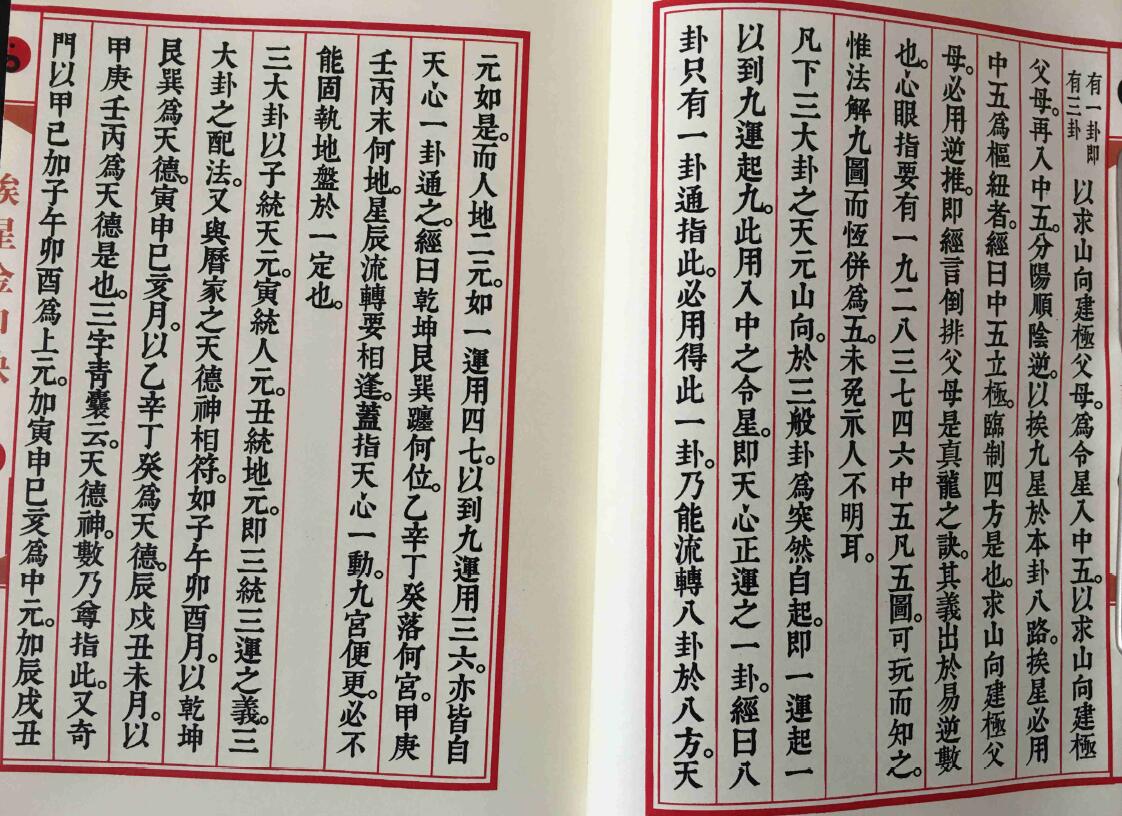 有一卦即
有三卦
以求山向建極父母。為令星入中五。以求山向建極
父母。再入中五。分陽順陰逆。以挨九星於本卦八路。挨星必用
中五為樞紐者。經曰中五立極。臨制四方是也。求山向建極父
母。必用逆推。即經言倒排父母是真龍之訣。其義出於易逆數
也。心眼指要有一九二八三七四六中五凡五圖。可玩而知之。
惟法解九圖而恆併為五。未免示人不明耳。
凡下三大卦之天元山向。於三般卦為突然自起。即一運起一
以到九運起九。此用入中之令星。即天心正運之一卦。經曰八
卦只有一卦通指此。必用得此一卦。乃能流轉八卦於八方。天
元如是。而人地二元。如一運用四七。以到九運用三六。亦皆自
天心一卦通之。經曰乾坤艮巽躔何位。乙辛丁癸落何宮。甲庚
壬丙末何地。星辰流轉要相逢。蓋指天心一動。九宮便更。必不
能固執地盤於一定也。
三大卦以子統天元。寅統人元。丑統地元。即三統三運之義。三
大卦之配法。又與曆家之天德神相符。如子午卯酉月。以乾坤
艮巽為天德。寅申巳亥月。以乙辛丁癸為天德。辰戍丑未月。以
甲庚壬丙為天德是也。三字青囊云。天德神。數乃尊指此。又奇
門以甲己加子午卯酉為上元。加寅申巳亥為中元。加辰戌丑
挨星金口訣